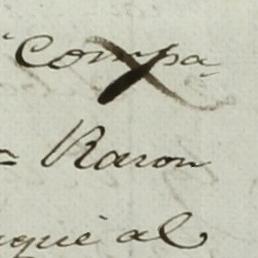 Compa
Razon
que al